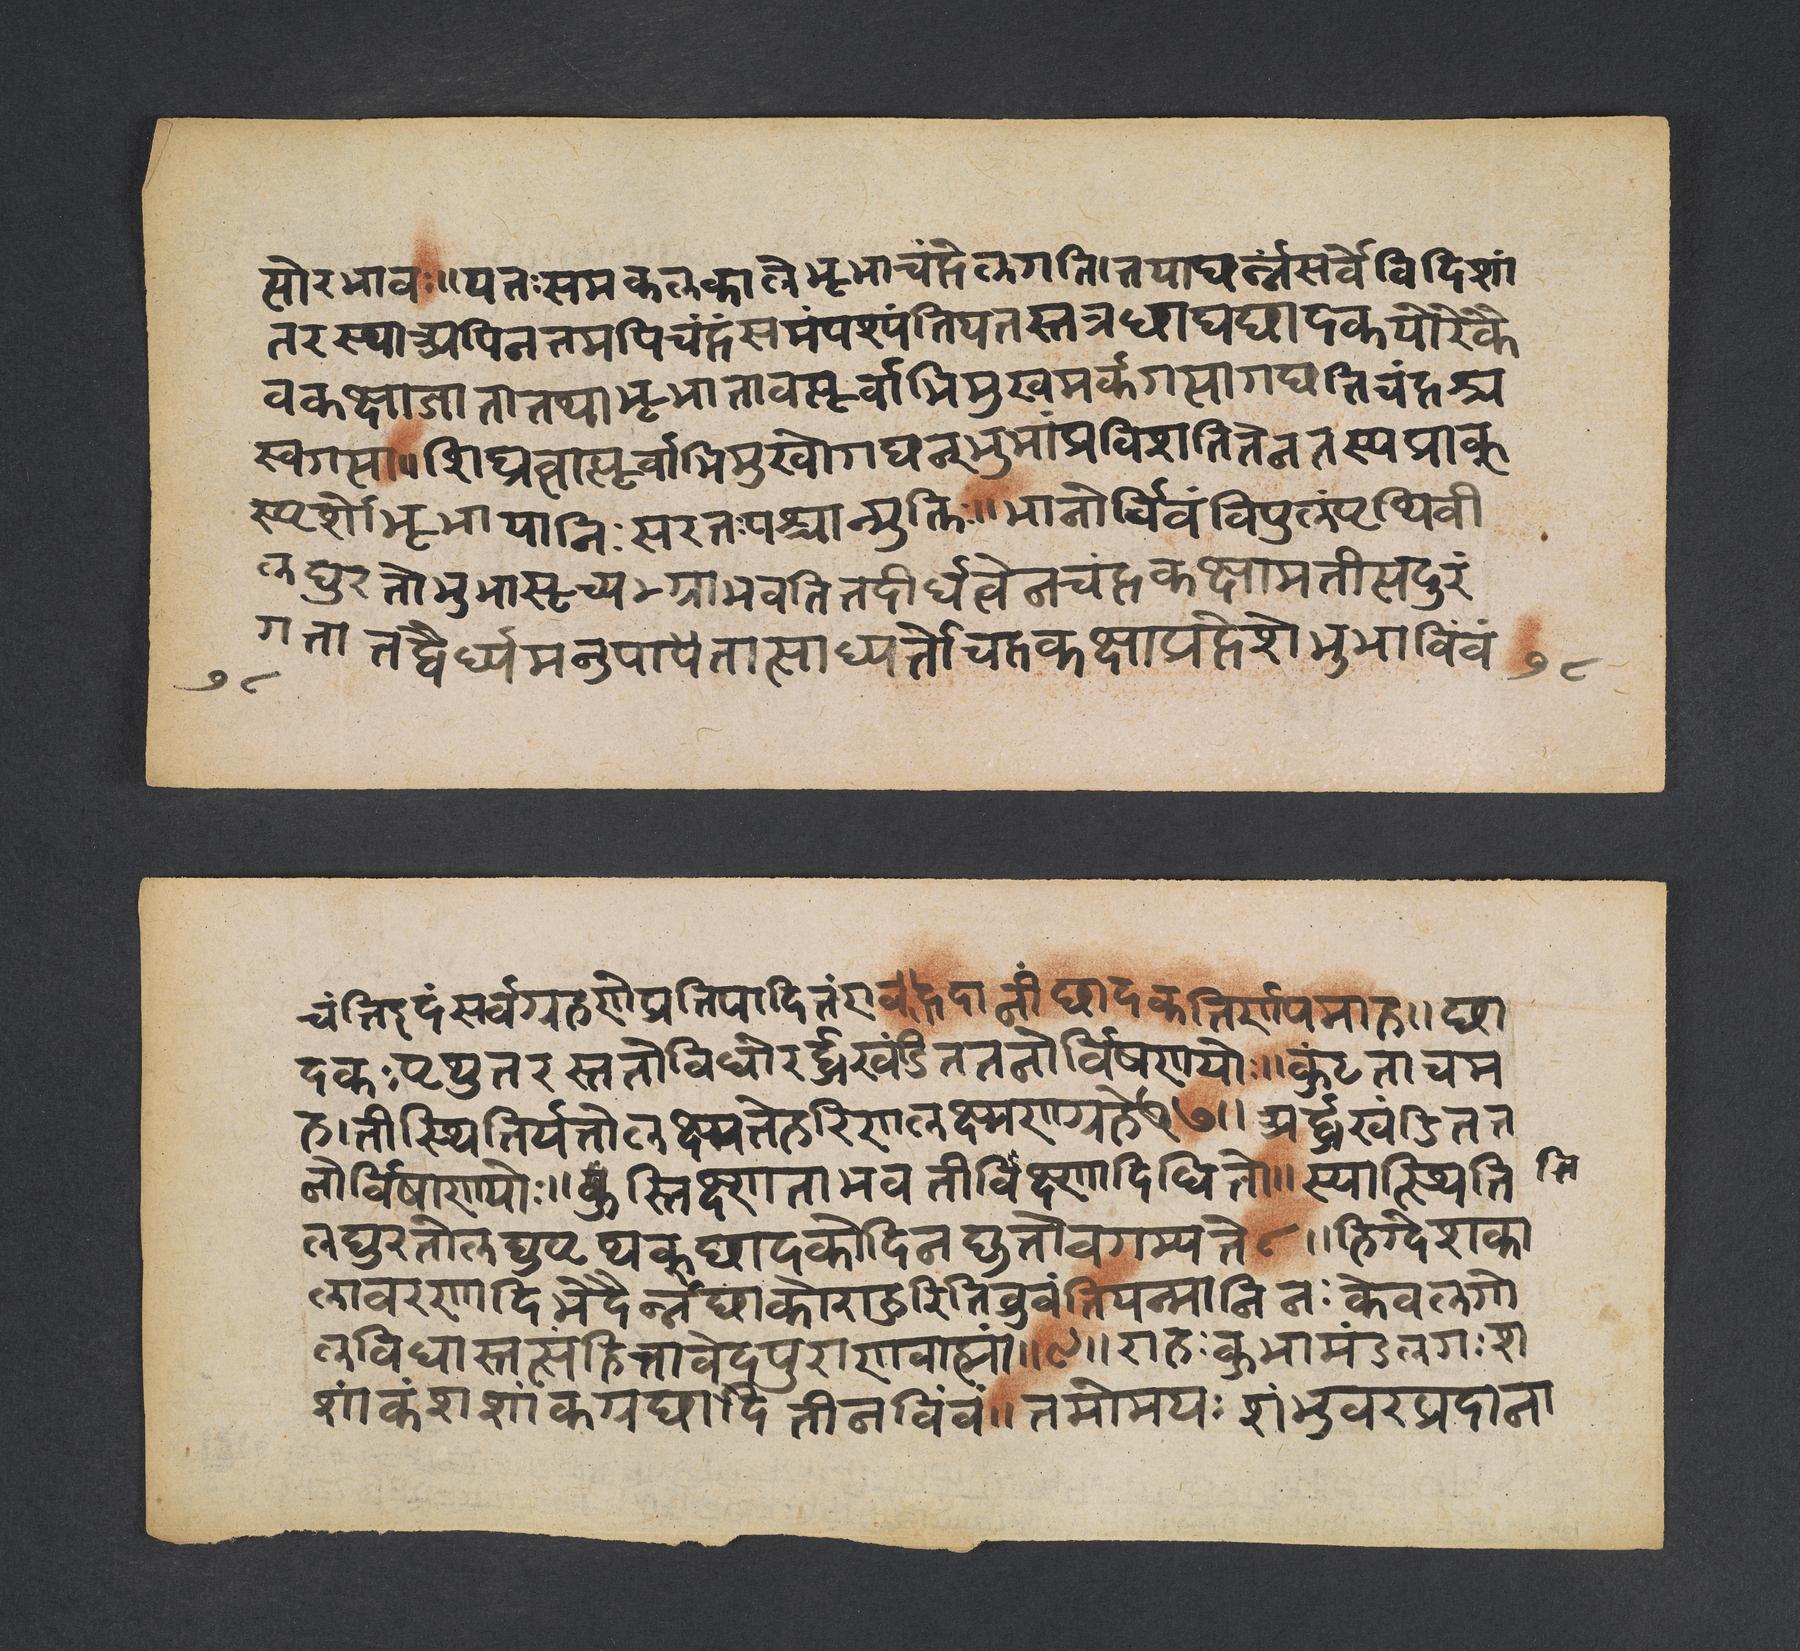 सोरभावः॥यतःसमकलकालेभूभाचंद्रेलगति।तयाछन्नंसर्वेविदिशां
तरस्थाअपिनतमपिचंद्रंसमंपश्यंतियतस्तत्रछाद्यछादकयोरेकै
वकक्षाजातातथाभूभातावत्पूर्वाभिमुखमर्कगत्यागछतिचंद्रश्च
स्वगत्या॥शिघ्रत्वात्पूर्वाभिमुखोगछन्भुभांप्रविशतितेनतस्यप्राक्
स्पर्शोभूभायानिःसरतःपश्चान्मुक्तिः॥भानोर्विंवंविपुलंपृथिवी
लघुरतोभुभासूच्यग्राभवतितदीर्घत्वेनचंद्रकक्षामतीत्यदुरं
गता तद्दैर्ध्यमनुपापेतात्साध्यर्तोचद्रकक्षाप्रद्रेशेभुभाविंवं
७८ ७८
चंतिइदंसर्वग्रहणेप्रतिपादितंएवंइदानींछादकनिर्णयमाह॥छा
दकःपृथुतरस्ततोविधोरर्द्धखंडिततनोर्विषणयोः॥कुंठताचम
ह।तीस्थितिर्यतोलक्ष्यतेहरिणलक्ष्मणग्रहे॥७॥अर्द्धखंडितत
नोर्विषाणयोः॥स्तिक्ष्णताभवतीविक्ष्णदिधितो॥स्यात्स्थिति
र्लघुरतोलघुपृथक्छादकोदिनछुतोवगम्यते८॥दिग्देशका
लावरणादिभेदैर्नछादकोराहुरितिव्रुवंतियन्मानिनःकेवलगो
लविद्यास्तत्संहितावेदपुराणवाह्यां॥९॥राहःकुभामंडलगःश
शांकंशशांकगश्छादतीनविंवं॥तमोमयःशंभुवरप्रदाना